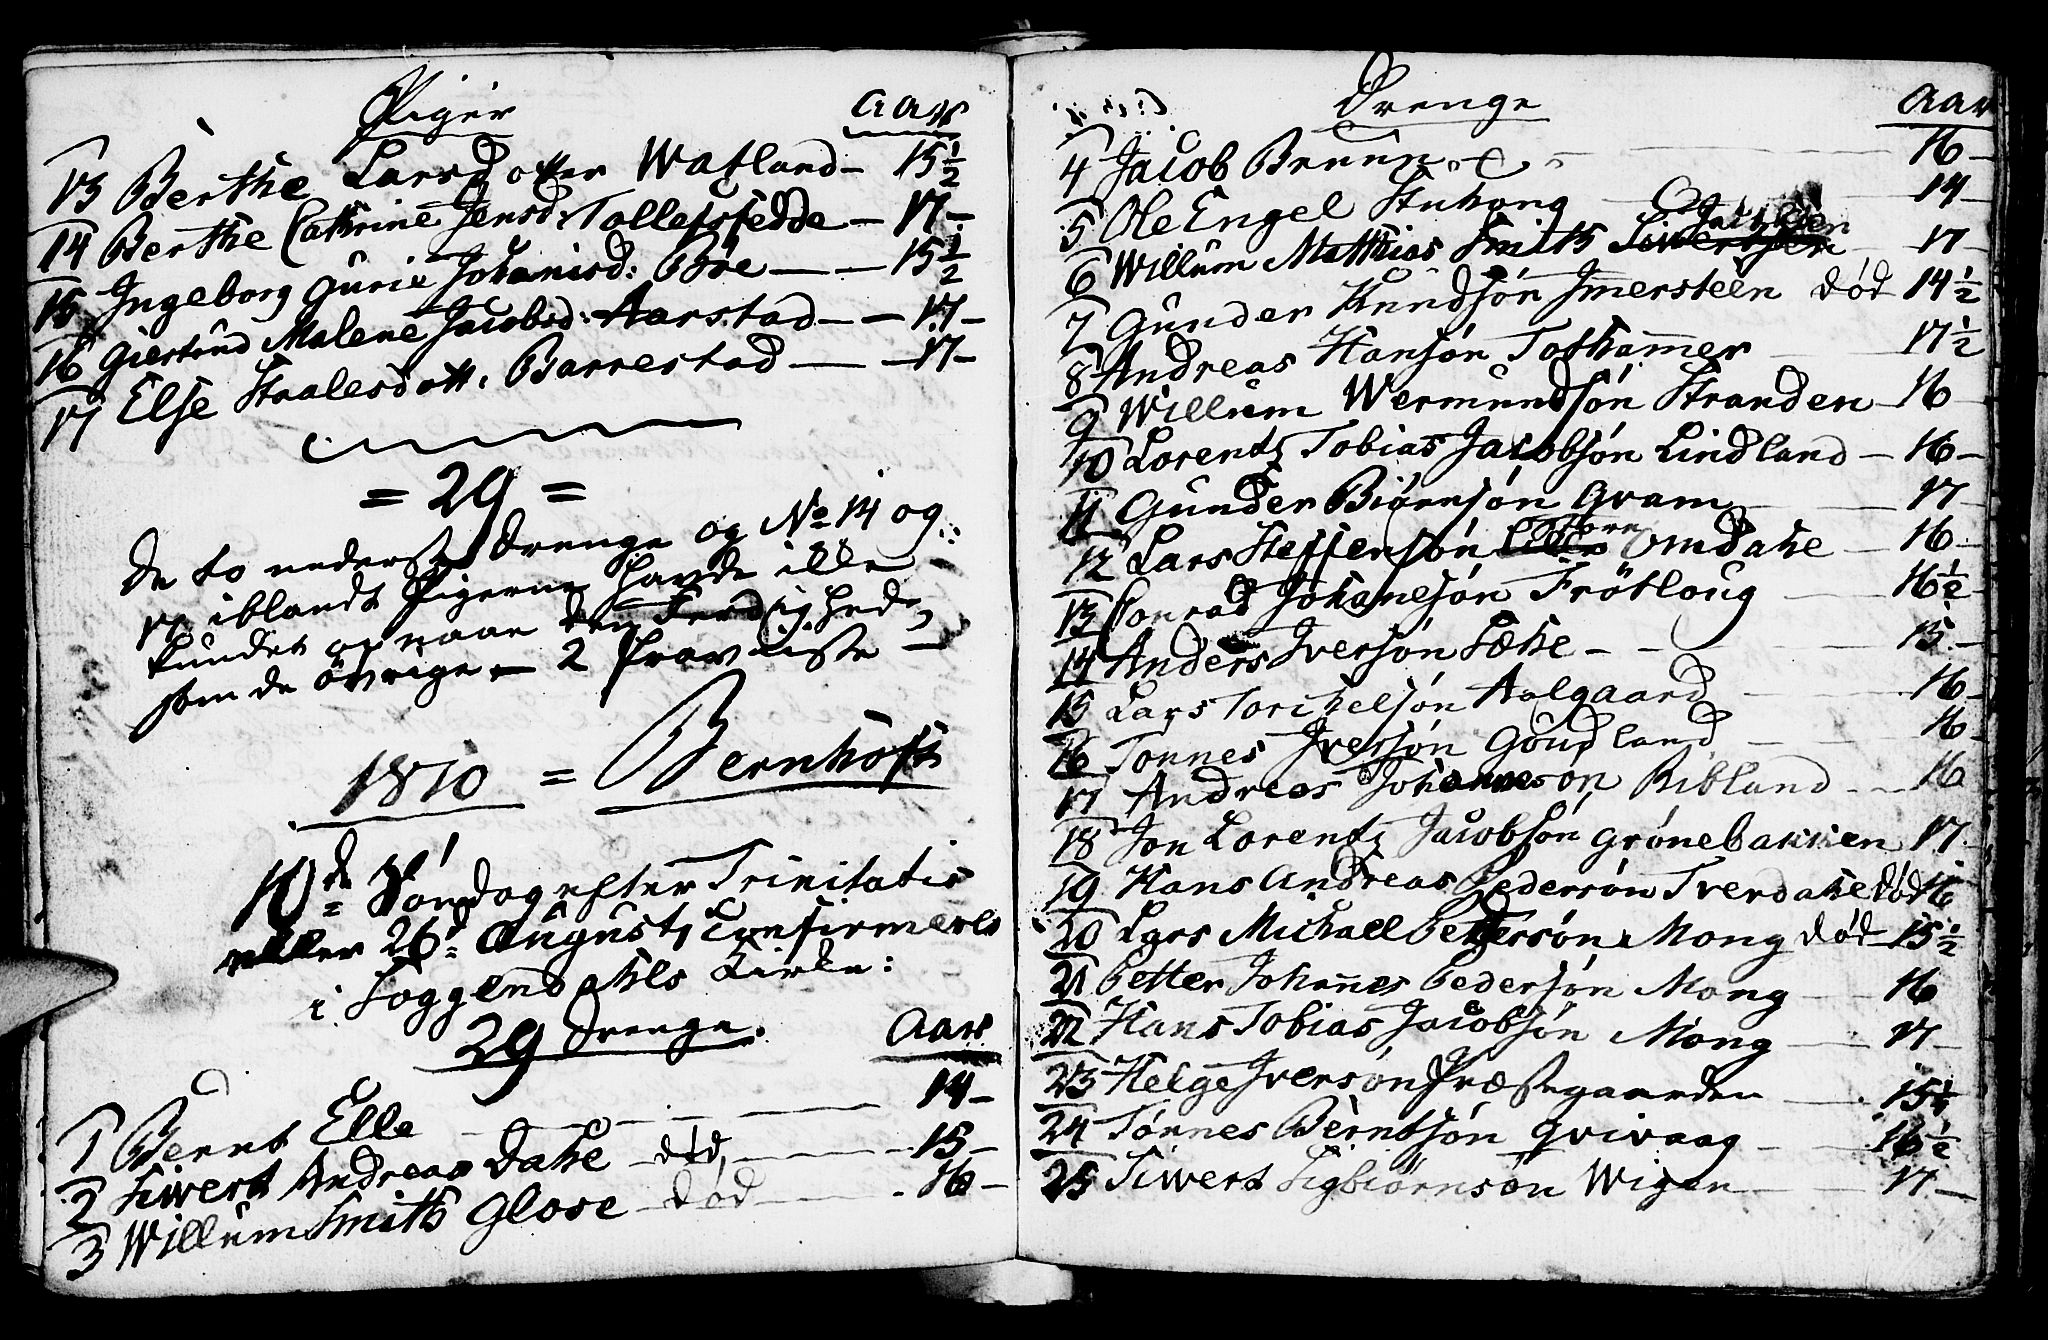 Piger Aar
13 Berthe Larsdotter Watland – 15 1/2
14 Berthe Cathrine Jensd: Tollefsfedde – 17 –
15 Ingeborg Gurie Johanisd: Bøe – – 15 1/2
16 Giertrud Malene Jacobsd: Aarstad – – 17 –
17 Else Staalesdott. Barrestad – – 17 –
= 29 =
De to nederste Drenge og No 14 og
17 iblandt Pigerne havde ikke
kundet opnaae den Ferdighed
som de øvrige – 2
1810 = Bernhoft
10de Søndag efter Trinitatis
eller 26d August, Confirmerels
i Soggendahls Kirke:
29 Drenge. Aar
1 Bernt Elle 14 –
2 Siwert Andreas Dahe død 15 –
3 Willum Smith Glose død 16 –
Drenge Aar
4 Jacob Bruun 16 –
5 Ole Engel Stuhoug 14 –
6 Willum Matthias Smith Siwertsen 17 –
7 Gunder Knudsøn Imersteen død 14 1/2
8 Andreas Hansøn Tothamer 17 1/2
9 Willum Wermundsøn Stranden 16
10 Lorentz Tobias Jacobsøn Lindland – 16 –
11 Gunder Biørnsøn Gvam 17 –
12 Lars Steffensøn Omdahe – 16 –
13 Conrad Johanesøn Frøtloug 16 1/2
14 Anders Iversøn Læhe – – 15 –
15 Lars Torchelsøn Aalgaard 16 –
16 Tonnes Iversøn Goudland 16 –
17 Andreas Johannesøn Bibland 16
18 Jon Lorentz Jacobsøn Grønebakken 17
19 Hans Andreas Pedersøn Tverdahe død 16
20 Lars Michaell Pettersøn Mong død 15 1/2
21 Petter Johannes Pedersøn Mong 16
22 Hans Tobias Jacobsøn Mong 17 –
23 Helge Iversøn Præstegaarden 15 1/4
24 Tønnes Berntsøn Qvivaag 16 1/2
25 Siwert Sigbiørnsøn Wigen 17 –